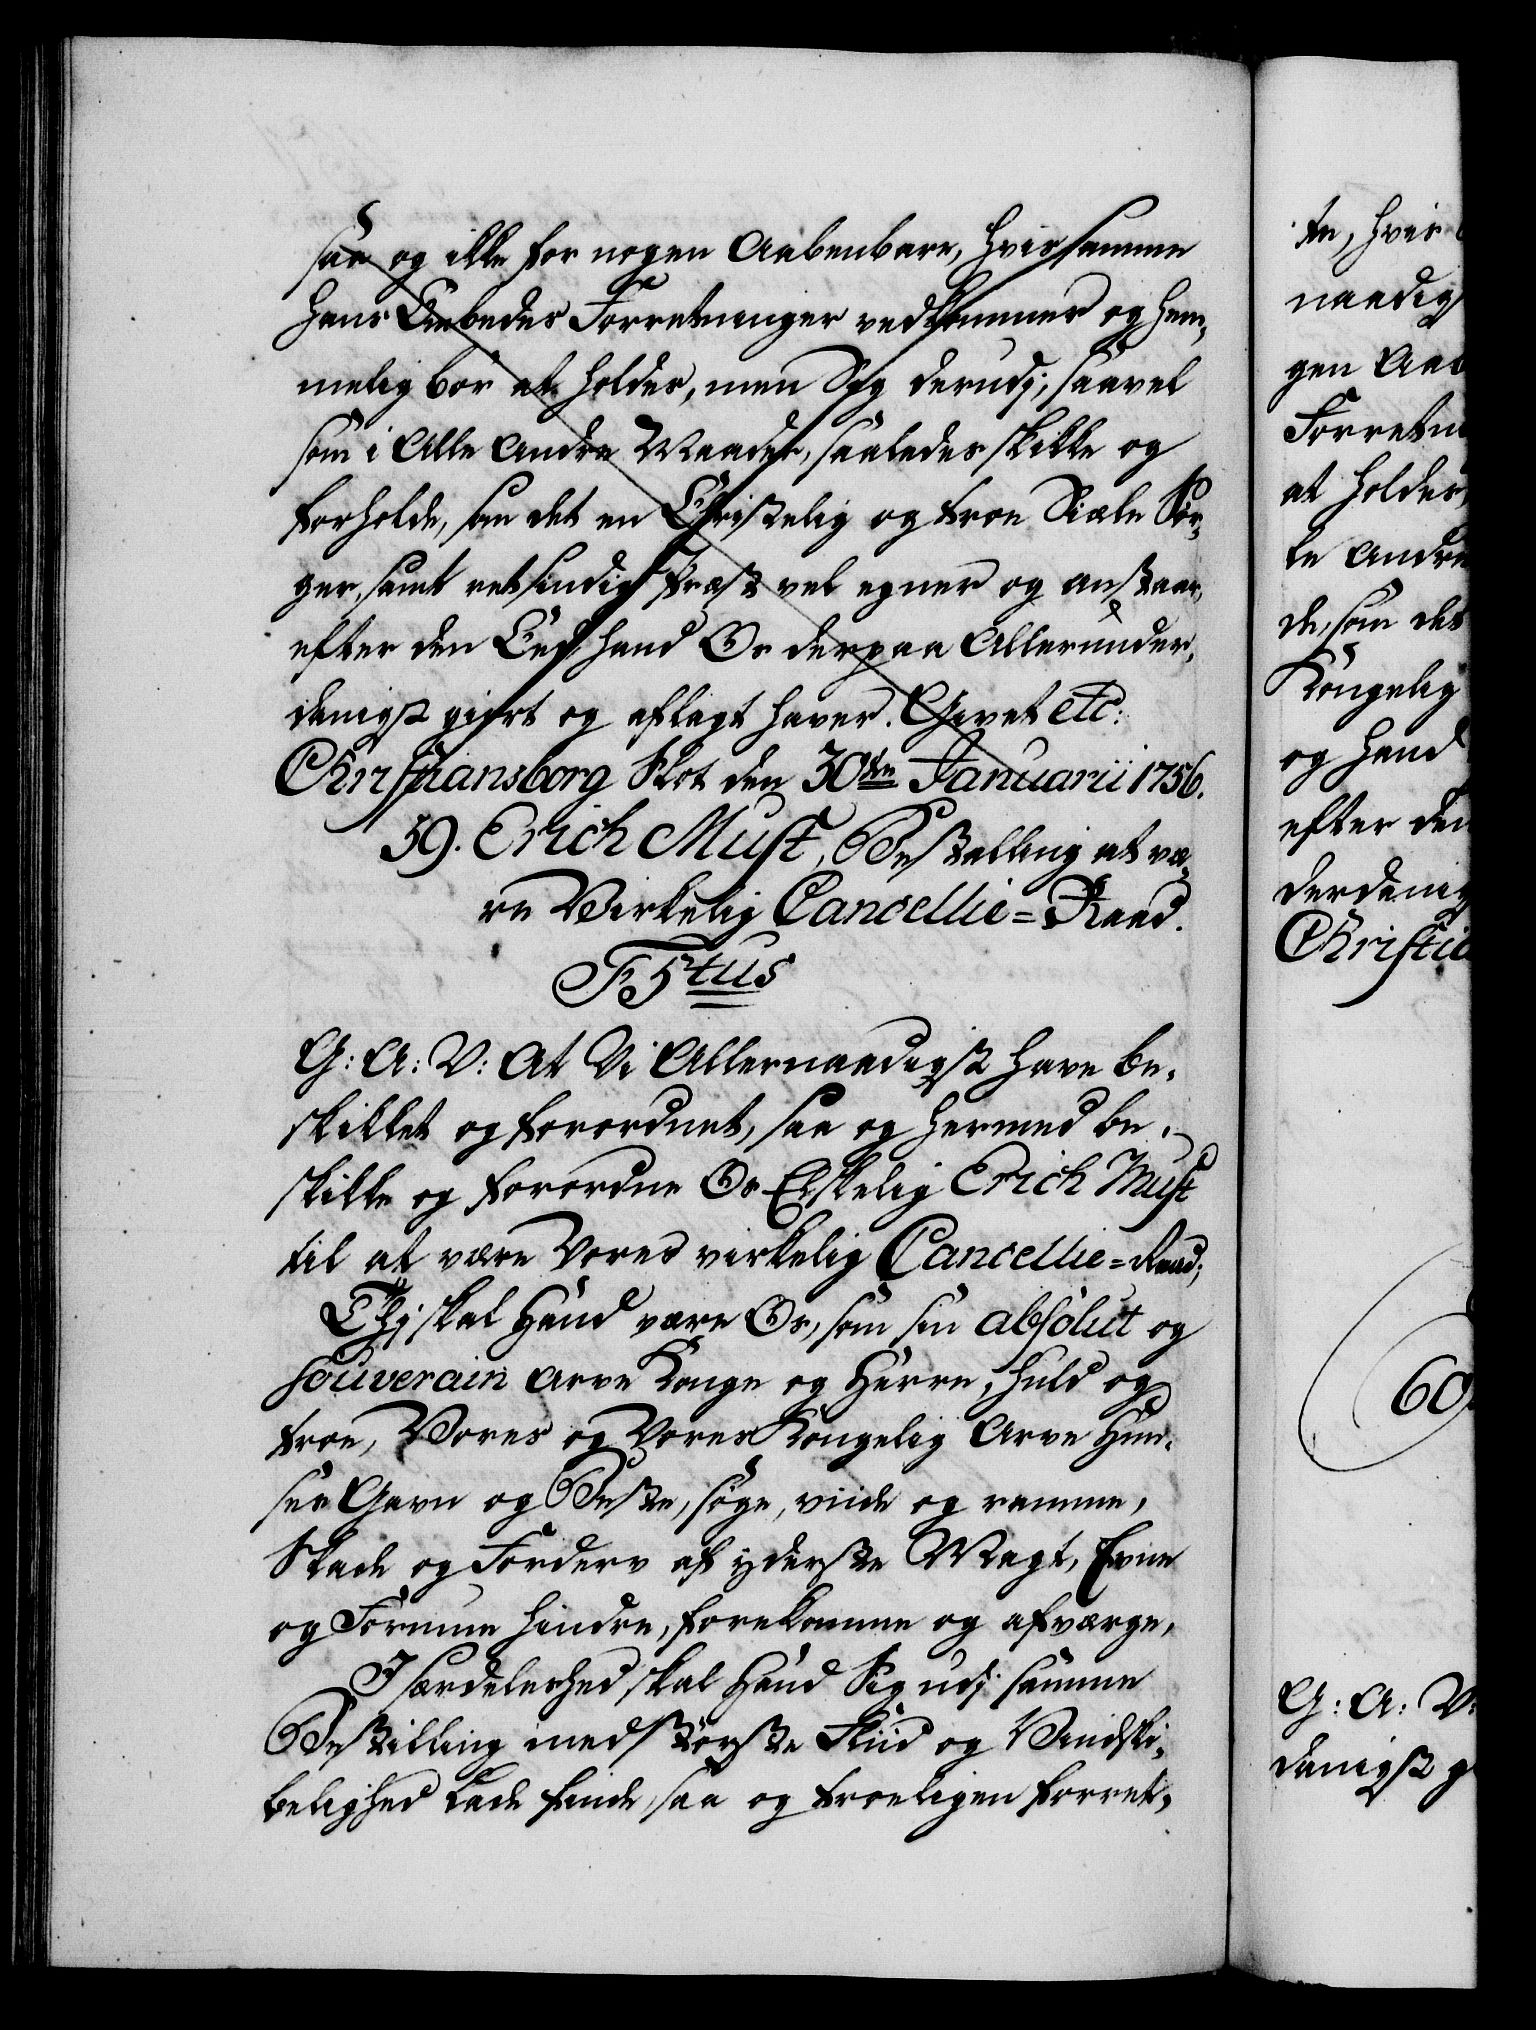 saa og ikke for nogen Aabenbare, hvis samme
hans Embedes Forretninger vedkommer og hem-
melig bør at holdes, men Sig derudj, saavel
som i Alle Andre Maader, saaledes skikke og
forholde, som det en Christelig og troe Siæle Sør-
ger, samt retsindig Præst vel egner og anstaar,
efter den Eed hand Os derpaa Allerunder-
danigst giort og aflagt haver. Givet etc:
Christiansborg Slot den 30te Januarii 1756.
59. Erich Must, Bestalling at væ-
re Virkelig Cancellie=Raad.
F 5tus
G: A: V: At Vi Allernaadigst have be-
skikket og forordnet, saa og hermed be-
skikke og forordne Os Elskelig Erich Must
til at være Vores virkelig Cancellie=Raad;
Thj skal Hand være Os, som sin absolut og
souverain Arve Konge og Herre, huld og
troe, Vores og Vores Kongelig Arve Huu-
ses Gavn og Beste, søge, viide og ramme,
Skade og Forderv af yderste Magt, Evne
og Formue hindre, forekomme og afværge,
I særdeleshed skal Hand Sig udj samme
Bestilling med største Fliid og Vindski-
belighed lade finde, saa og troeligen forret-
te, hvis
naadigs
gen Aab
Forretn
at holdes,
le Andre
de, som det
Kongelig
og hand
efter den
derdanig
Christia
60.
G: A: V:
danigst g